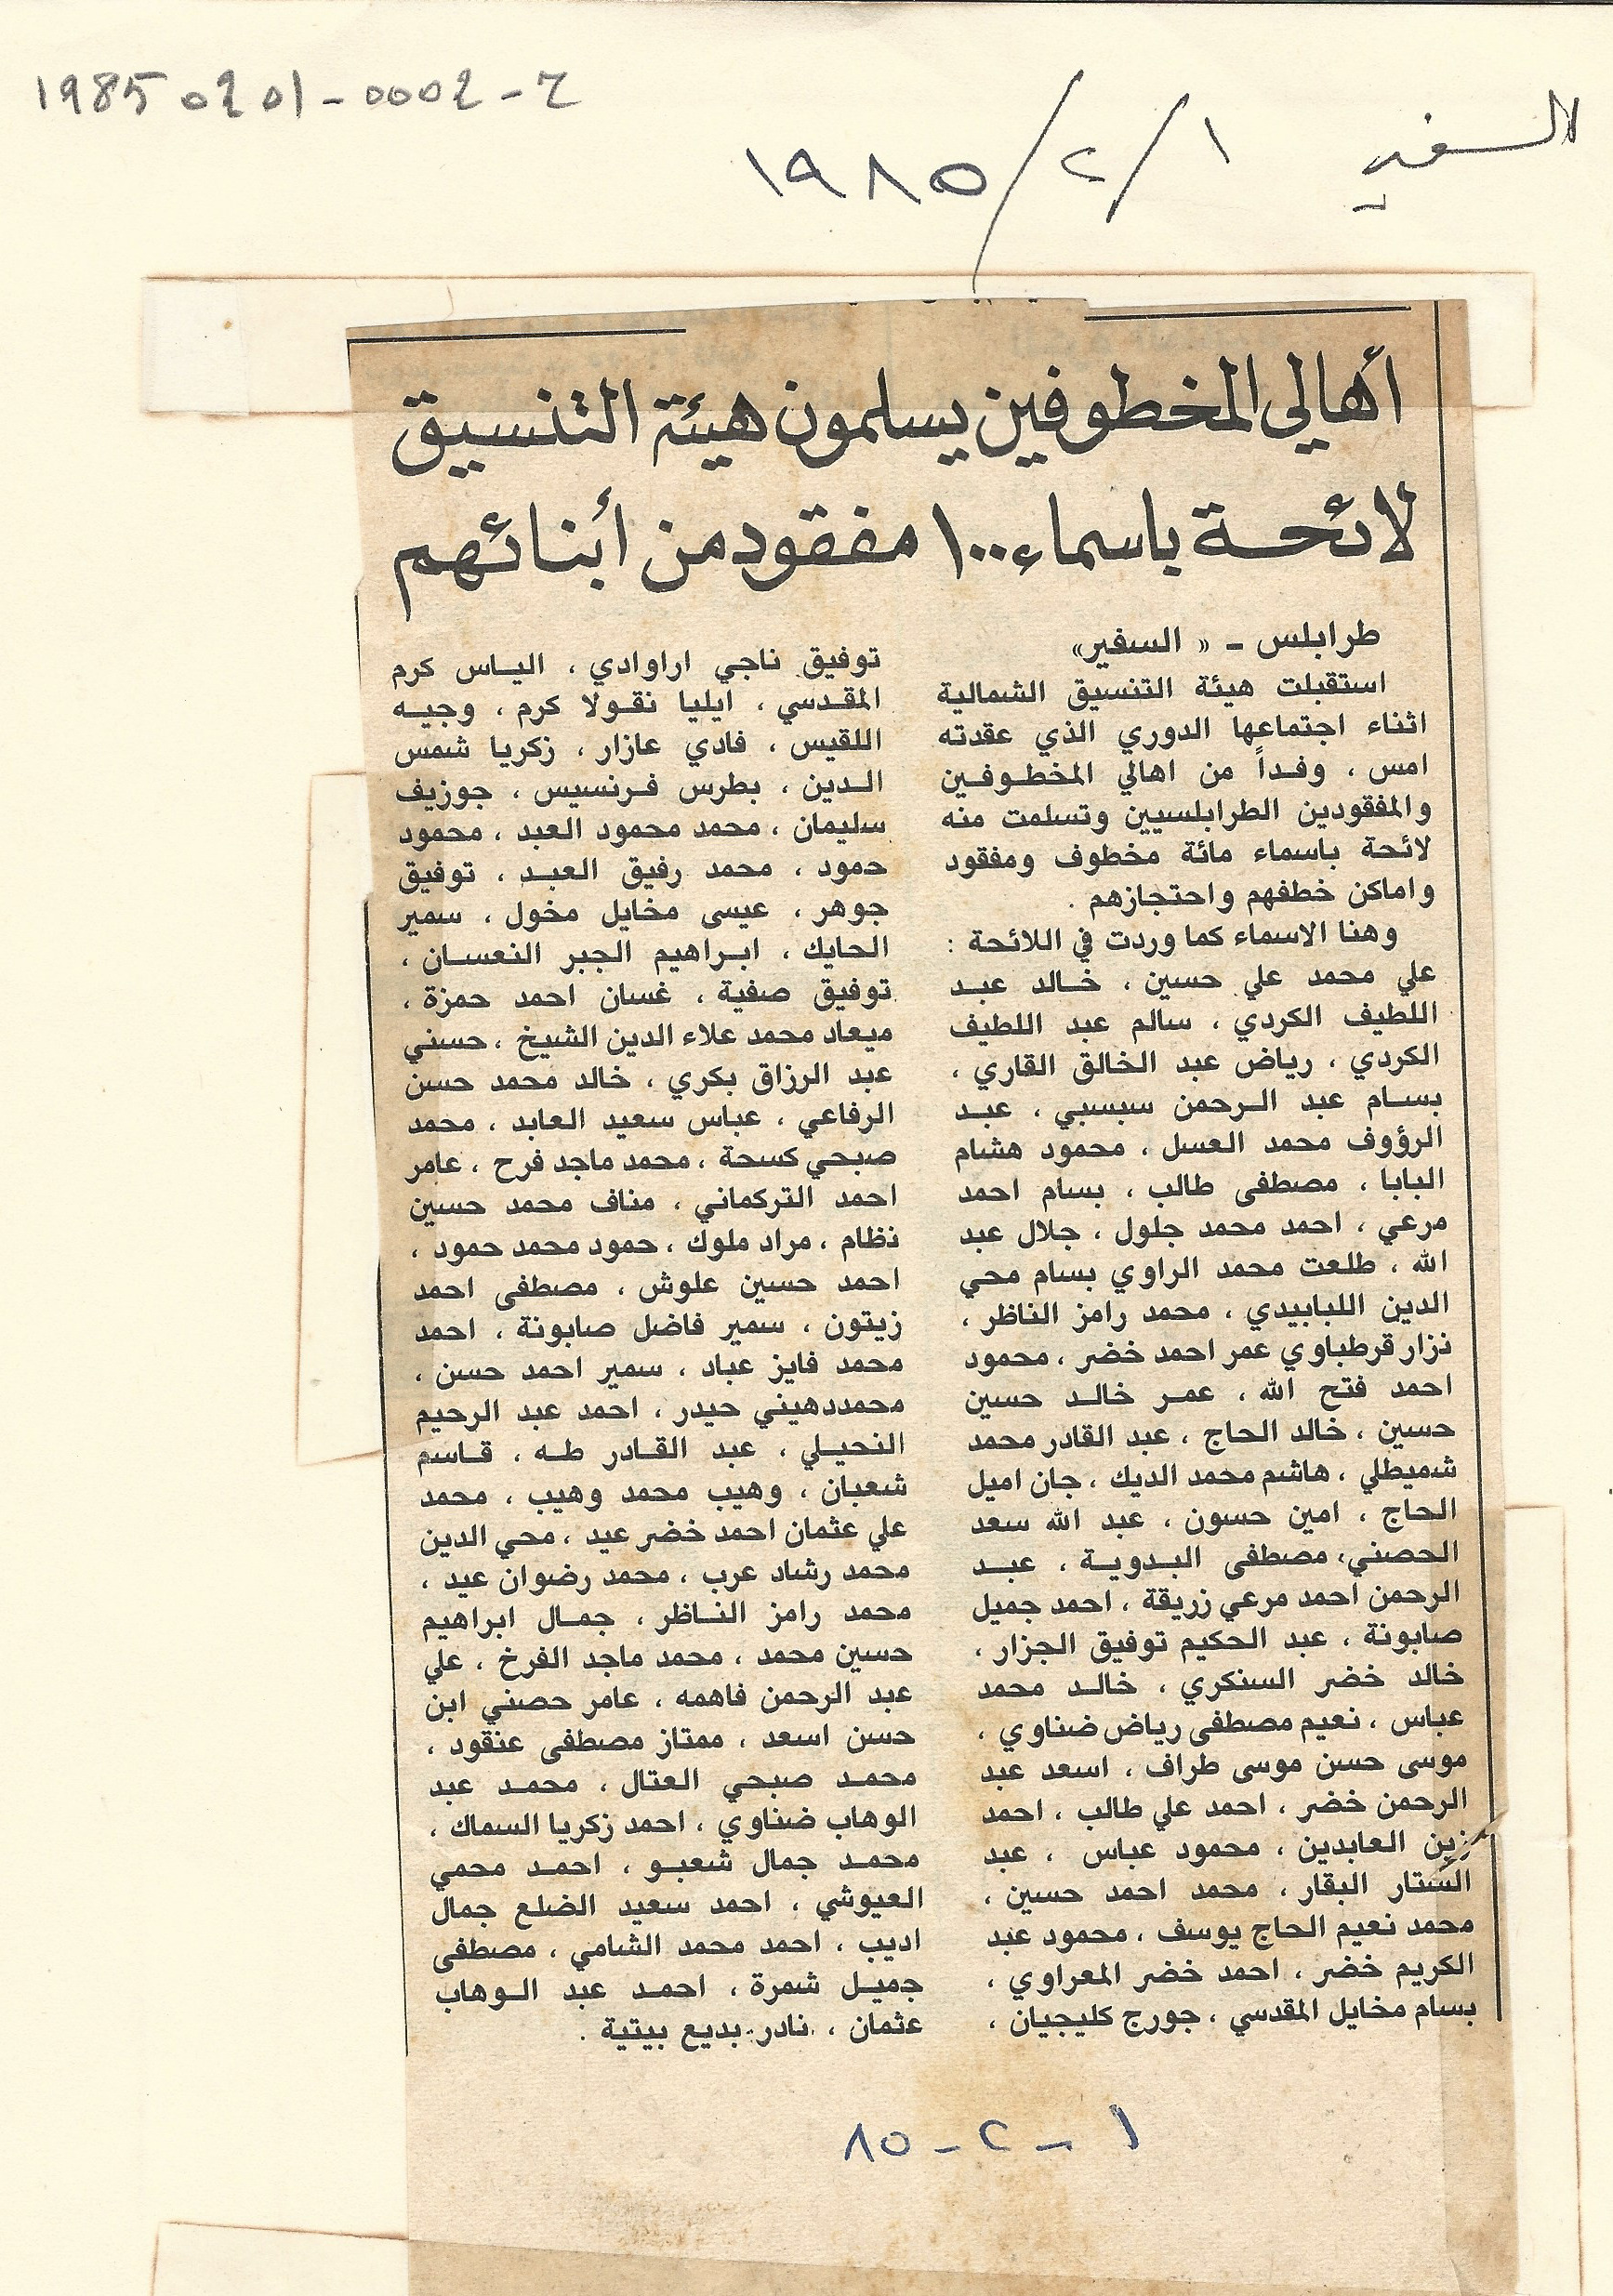 19850201-0002-ح
السفير ١/٢/١٩٨٥
أهالي المخطوفين يسلمون هيئة التنسيق
لائحة باسماء ١٠٠ مفقود من أبنائهم
طرابلس - « السفير»
استقبلت هيئة التنسيق الشمالية
اثناء اجتماعها الدوري الذي عقدته
امس ، وفداً من اهالي المخطوفين
والمفقودين الطرابلسيين وتسلمت منه
لائحة باسماء مائة مخطوف ومفقود
واماكن خطفهم واحتجازهم .
وهنا الاسماء كما وردت في اللائحة :
علي محمد علي حسين ، خالد عبد
اللطيف الكردي ، سالم عبد اللطيف
الكردي ، رياض عبد الخالق القاري ،
بسام عبد الرحمن سبسبي ، عبد
الرؤوف محمد العسل ، محمود هشام
البابا ، مصطفى طالب ، بسام احمد
مرعي ، احمد محمد جلول ، جلال عبد
الله ، طلعت محمد الراوي بسام محي
الدين اللبابيدي ، محمد رامز الناظر ،
نزار قرطباوي عمر احمد خضر ، محمود
احمد فتح الله ، عمر خالد حسين
حسين ، خالد الحاج ، عبد القادر محمد
شميطلي ، هاشم محمد الديك ، جان اميل
الحاج ، امين حسون ، عبد الله سعد
الحصني، مصطفى البدوية ، عبد
الرحمن احمد مرعي زريقة ، احمد جميل
صابونة ، عبد الحكيم توفيق الجزار ،
خالد خضر السنكري ، خالد محمد
عباس ، نعيم مصطفى رياض ضناوي ،
موسى حسن موسى طراف ، اسعد عبد
الرحمن خضر ، احمد علي طالب ، احمد
زين العابدين ، محمود عباس ، عبد
الستار البقار ، محمد احمد حسين ،
محمد نعيم الحاج يوسف ، محمود عبد
الكريم خضر ، احمد خضر المعراوي ،
بسام مخايل المقدسي ، جورج كليجيان ،
توفيق ناجي اراوادي ، الياس كرم
المقدسي ، ايليا نقولا كرم ، وجيه
اللقيس ، فادي عازار ، زكريا شمس
الدين ، بطرس فرنسيس ، جوزيف
سليمان ، محمد محمود العبد ، محمود
حمود ، محمد رفيق العبد ، توفيق
جوهر ، عيسى مخايل مخول ، سمير
الحايك ، ابراهيم الجبر النعسان ،
توفيق صفية ، غسان احمد حمزة ،
ميعاد محمد علاء الدين الشيخ ، حسني
عبد الرزاق بكري ، خالد محمد حسن
الرفاعي ، عباس سعيد العابد ، محمد
صبحي كسحة ، محمد ماجد فرح ، عامر
احمد التركماني ، مناف محمد حسين
نظام ، مراد ملوك ، حمود محمد حمود ،
احمد حسين علوش ، مصطفى احمد
زيتون ، سمير فاضل صابونة ، احمد
محمد فايز عباد ، سمير احمد حسن ،
محمددهيني حيدر ، احمد عبد الرحيم
النحيلي ، عبد القادر طه ، قاسم
شعبان ، وهيب محمد وهيب ، محمد
علي عثمان احمد خضر عيد ، محي الدين
محمد رشاد عرب ، محمد رضوان عيد ،
محمد رامز الناظر ، جمال ابراهيم
حسين محمد ، محمد ماجد الفرخ ، علي
عبد الرحمن فاهمه ، عامر حصني ابن
حسن اسعد ، ممتاز مصطفى عنقود ،
محمد صبحي العتال ، محمد عبد
الوهاب ضناوي ، احمد زكريا السماك ،
محمد جمال شعبو ، احمد محمي
العيوشي ، احمد سعيد الضلع جمال
اديب ، احمد محمد الشامي ، مصطفى
جميل شمرة ، احمد عبد الوهاب
عثمان ، نادر بديع بيتية .
١ - ٢ - ٨٥